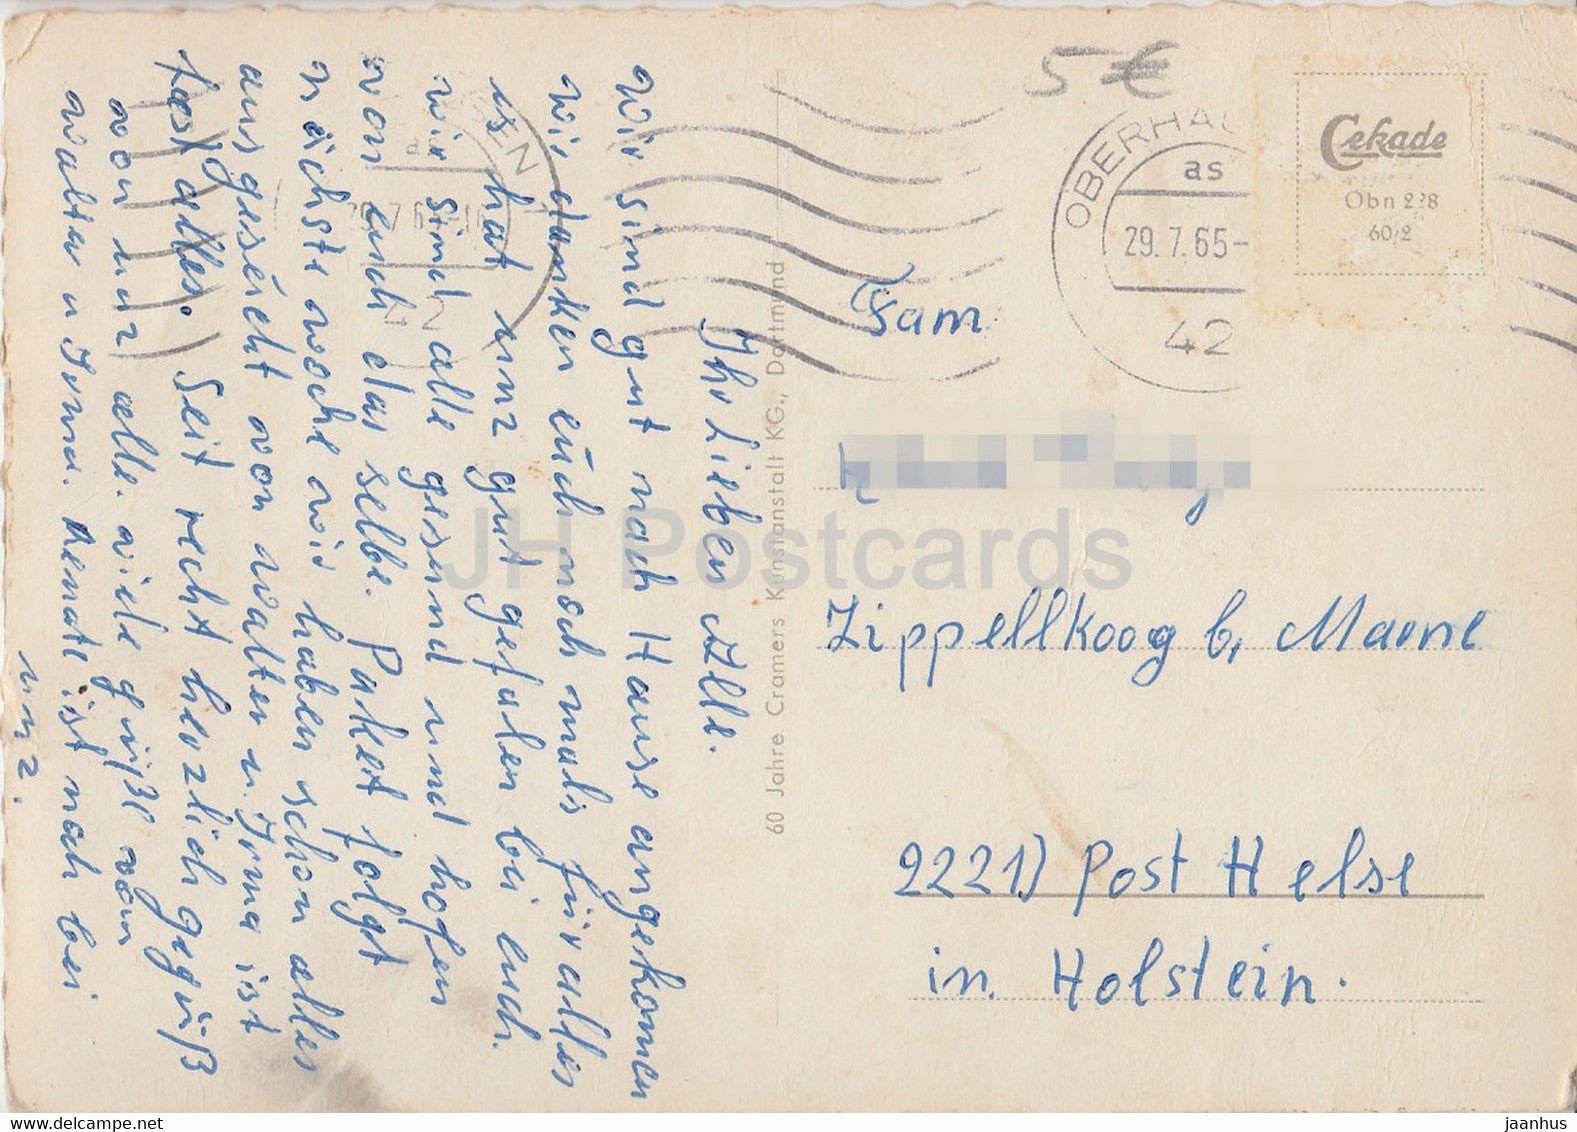 Ihr Lieben Alle.
wir sind gut nach Hause angekomen
wir danken euch noch mals für alles
is hat unz gut gefalen bei euch.
wir sind alle gesund und hofen
von euch das selbe. Paket folgt
nächste woche wir haben schon alles
ausgesucht von walter u. Irma ist
fast alles. Seit recht herzlich gegrüß
von unz alle. viele grüße von
walter u Irma. Renate ist noch bei
unz.
60 Jahre Cramers Kunstanstalt KG., Dortmund
5 €
OBERHAU
as
29.7.65-
42
Cekade
Obn 228
60/2
Fam.
Zippellkoog b, Marne
2221) Post Helse
in Holstein.
JH Postcards
hippostcard.com
jaanhus